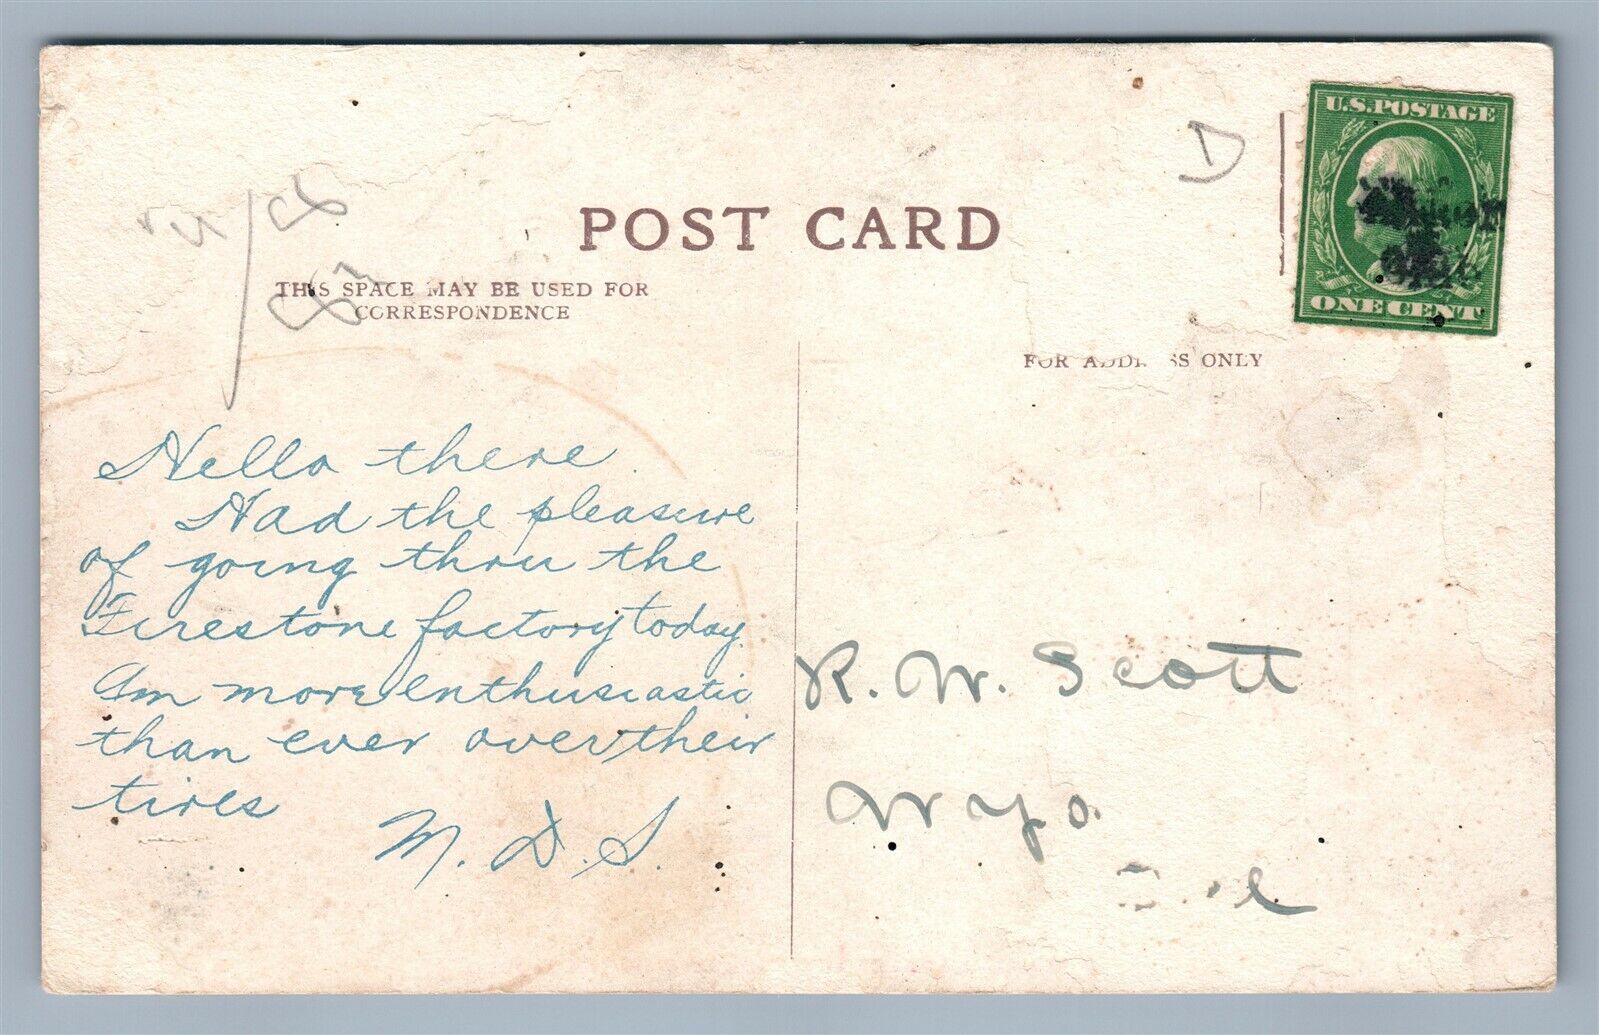 U.S. POSTAGE
D
POST CARD
THIS SPACE MAY BE USED FOR
CORRESPONDENCE
ONE CENT
FOR ADDRESS ONLY
Hello there.
Had the pleasure
of going thru the
Firestone factory today.
Am more enthusiastic
than ever over their
tires
M. D. S.
R. W. Scott
Wyo.